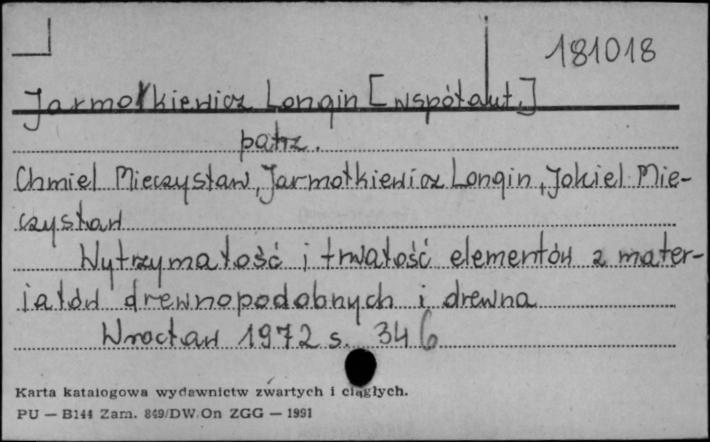 181018
Jarmołkiewicz Longin [współaut.]
patrz.
Chmiel Mieczysław, Jarmołkiewicz Longin, Jokiel Mie-
czysław
Wytrzymałość i trwałość elementów z mater-
iałów drewnopodobnych i drewna
Wrocław 1972 s. 346
Karta katalogowa wydawnictw zwartych i ciągłych.
PU — B144 Zam. 849/DW/On ZGG — 1991